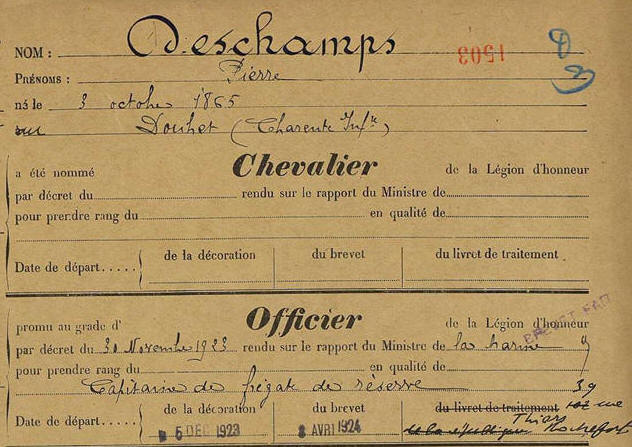 NOM : Deschamps 1503
PRÉNOMS : Pierre
né le 3 octobre 1865
au Douhet (Charente Infre)
a été nommé Chevalier de la Légion d'honneur
par décret du rendu sur le rapport du Ministre de
pour prendre rang du en qualité de
Date de départ..... de la décoration du brevet du livret de traitement
promu au grade d' Officier de la Légion d'honneur
BREVET FAIT
par décret du 30 Novembre 1923 rendu sur le rapport du Ministre de la Marine
pour prendre rang du en qualité de
Capitaine de frégate de réserve 39
Date de départ..... de la décoration du brevet du livret de traitement rue
5 DEC 1923 8 AVRI 1924 de la république Thiers Rochefort